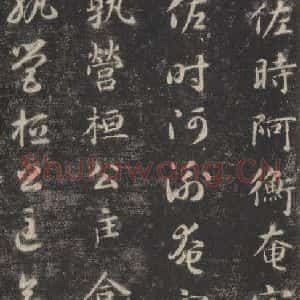 佐時阿衡奄
佐時阿衡奄
孰營桓公匡合
孰營桓公匡合
Shufawang.CN